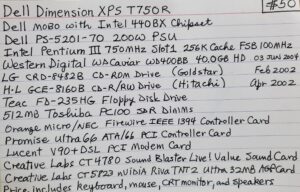 #50
Dell Dimension XPS T750R
Dell MOBO with Intel 440BX Chipset
Dell PS-5201-7D 200W PSU
Intel Pentium III 750MHz Slot1 256K Cache FSB 100MHz
Western Digital WD Caviar WD400BB 40.0GB HD 03 Jun 2004
LG CRD-8482B CD-ROM Drive (Goldstar) Feb 2002
H-L GCE-8160B CD-R/RW Drive (Hitachi) Apr 2002
Teac FD-235HG Floppy Disk Drive
512MB Toshiba PC100 SDR DIMMs
Orange Micro/NEC Firewire IEEE 1394 Controller Card
Promise Ultra66 ATA/66 PCI Controller Card
Lucent V90+DSL PCI Modem Card
Creative Labs CT4780 Sound Blaster Live! Value Sound Card
Creative Labs CT5823 nVidia Riva TNT2 Ultra 32MB AGP Card
Price includes keyboard, mouse, CRT monitor, and speakers